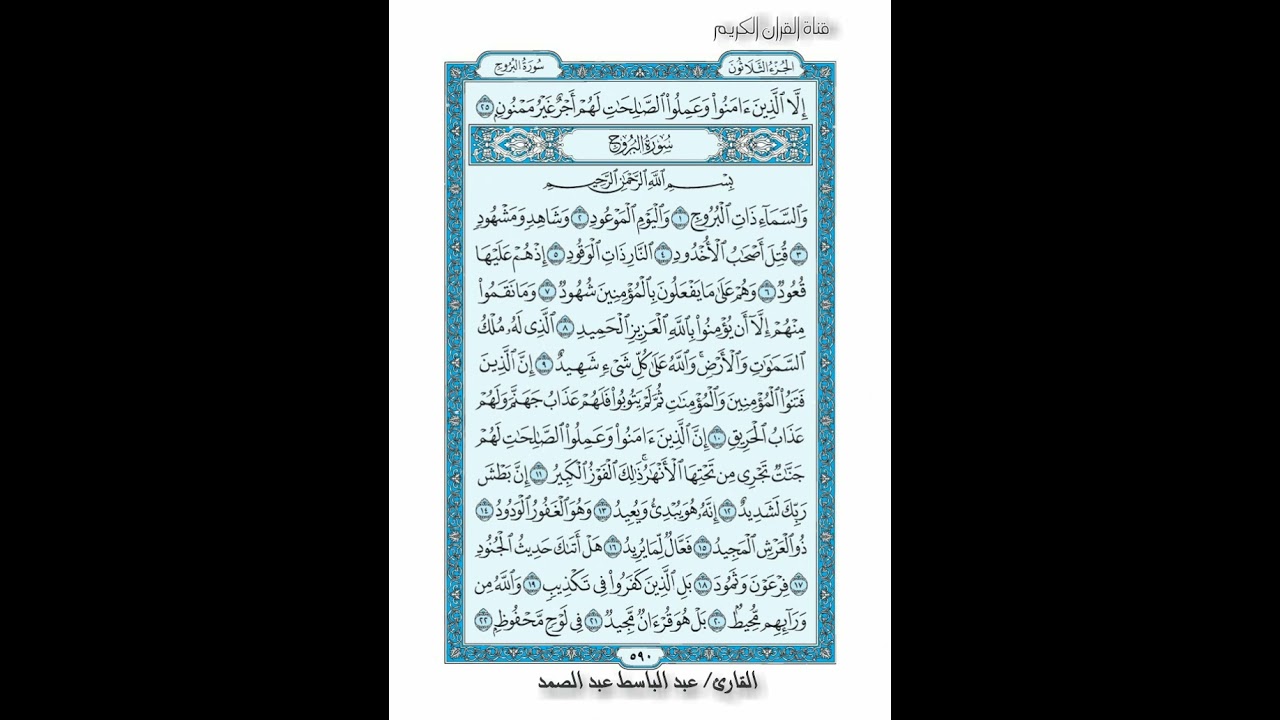 قناة القران الكريم
الجُزْءُ الثَّلَاثُونَ
سُورَةُ البُرُوج
إِلَّا ٱلَّذِينَ ءَامَنُواْ وَعَمِلُواْ ٱلصَّٰلِحَٰتِ لَهُمْ أَجْرٌ غَيْرُ مَمْنُونٍۭ ٢٥
سُورَةُ البُرُوج
بِسْمِ ٱللَّهِ ٱلرَّحْمَٰنِ ٱلرَّحِيمِ
وَٱلسَّمَآءِ ذَاتِ ٱلْبُرُوجِ ١ وَٱلْيَوْمِ ٱلْمَوْعُودِ ٢ وَشَاهِدٍ وَمَشْهُودٍ
٣ قُتِلَ أَصْحَٰبُ ٱلْأُخْدُودِ ٤ ٱلنَّارِ ذَاتِ ٱلْوَقُودِ ٥ إِذْ هُمْ عَلَيْهَا
قُعُودٌ ٦ وَهُمْ عَلَىٰ مَا يَفْعَلُونَ بِٱلْمُؤْمِنِينَ شُهُودٌ ٧ وَمَا نَقَمُواْ
مِنْهُمْ إِلَّآ أَن يُؤْمِنُواْ بِٱللَّهِ ٱلْعَزِيزِ ٱلْحَمِيدِ ٨ ٱلَّذِى لَهُۥ مُلْكُ
ٱلسَّمَٰوَٰتِ وَٱلْأَرْضِۚ وَٱللَّهُ عَلَىٰ كُلِّ شَىْءٍ شَهِيدٌ ٩ إِنَّ ٱلَّذِينَ
فَتَنُواْ ٱلْمُؤْمِنِينَ وَٱلْمُؤْمِنَٰتِ ثُمَّ لَمْ يَتُوبُواْ فَلَهُمْ عَذَابُ جَهَنَّمَ وَلَهُمْ
عَذَابُ ٱلْحَرِيقِ ١٠ إِنَّ ٱلَّذِينَ ءَامَنُواْ وَعَمِلُواْ ٱلصَّٰلِحَٰتِ لَهُمْ
جَنَّٰتٌ تَجْرِى مِن تَحْتِهَا ٱلْأَنْهَٰرُۚ ذَٰلِكَ ٱلْفَوْزُ ٱلْكَبِيرُ ١١ إِنَّ بَطْشَ
رَبِّكَ لَشَدِيدٌ ١٢ إِنَّهُۥ هُوَ يُبْدِئُ وَيُعِيدُ ١٣ وَهُوَ ٱلْغَفُورُ ٱلْوَدُودُ ١٤
ذُو ٱلْعَرْشِ ٱلْمَجِيدُ ١٥ فَعَّالٌ لِّمَا يُرِيدُ ١٦ هَلْ أَتَىٰكَ حَدِيثُ ٱلْجُنُودِ
١٧ فِرْعَوْنَ وَثَمُودَ ١٨ بَلِ ٱلَّذِينَ كَفَرُواْ فِى تَكْذِيبٍ ١٩ وَٱللَّهُ مِن
وَرَآئِهِم مُّحِيطٌۢ ٢٠ بَلْ هُوَ قُرْءَانٌ مَّجِيدٌ ٢١ فِى لَوْحٍ مَّحْفُوظٍۭ ٢٢
٥٩٠
القارئ/ عبد الباسط عبد الصمد